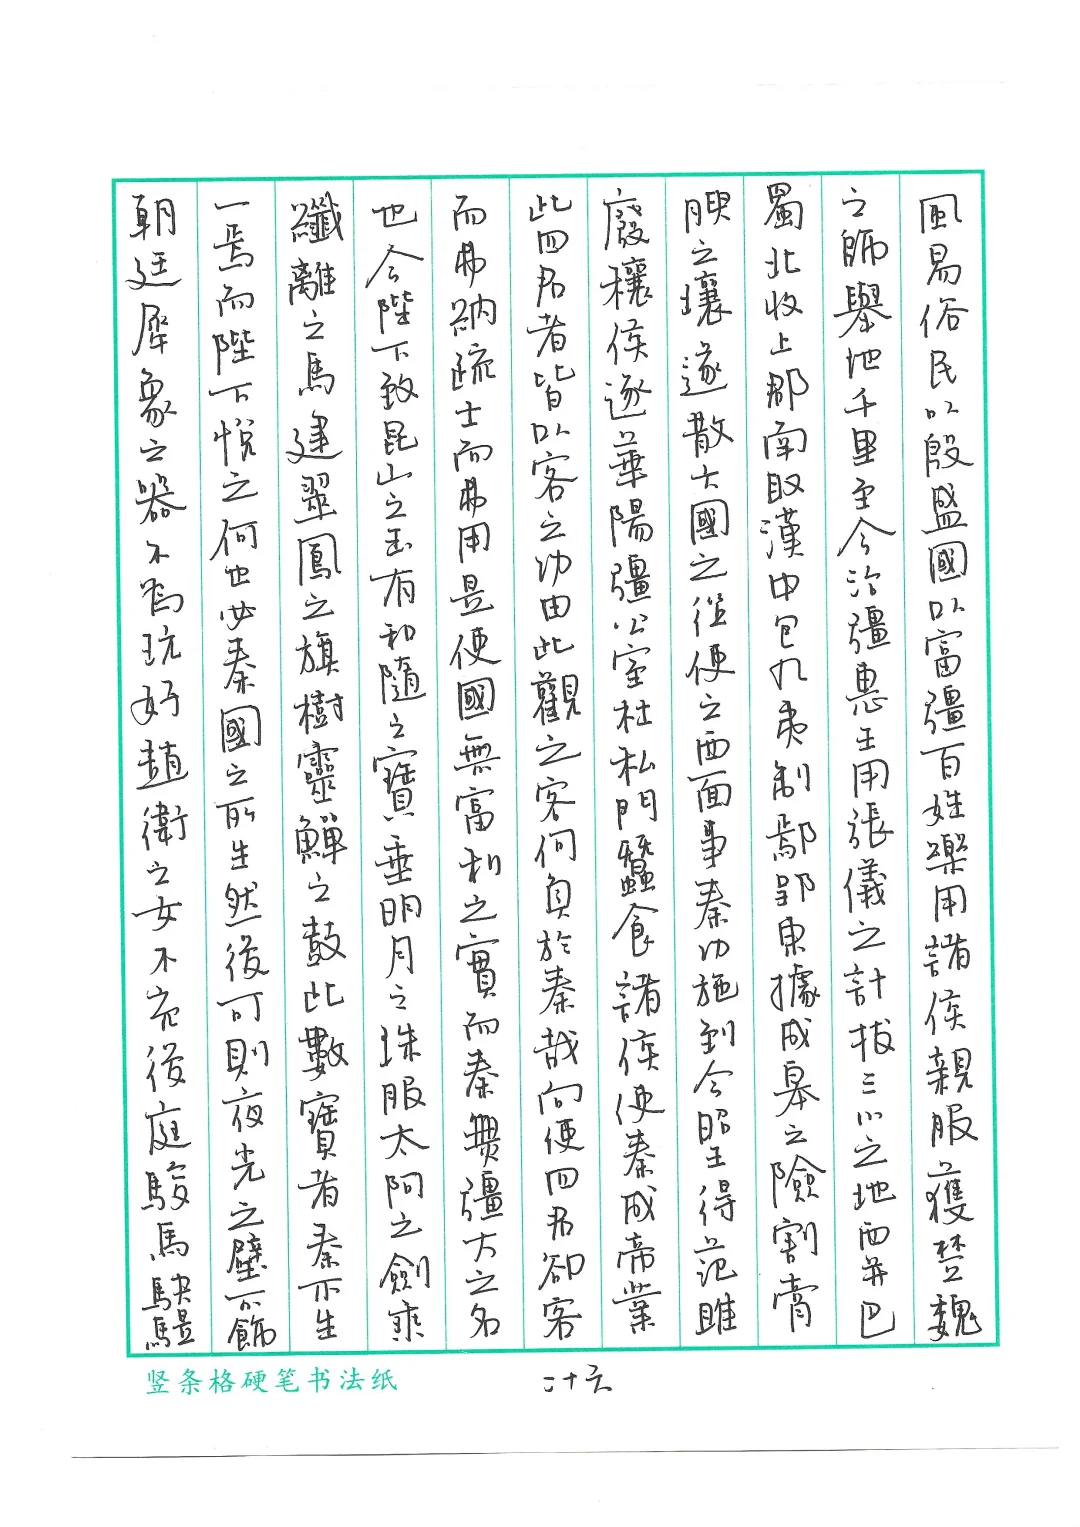 風易俗民以殷盛國以富彊百姓樂用諸侯親服獲楚魏
之師舉地千里至今治彊惠王用張儀之計拔三川之地西并巴
蜀北收上郡南取漢中包九夷制鄢郢東據成皋之險割膏
腴之壤遂散六國之從使之西面事秦功施到今昭王得范雎
廢穰侯逐華陽彊公室杜私門蠶食諸侯使秦成帝業
此四君者皆以客之功由此觀之客何負於秦哉向使四君卻客
而弗納疏士而弗用是使國無富利之實而秦無彊大之名
也今陛下致昆山之玉有和隨之寶垂明月之珠服太阿之劍乘
纖離之馬建翠鳳之旗樹靈鱓之鼓此數寶者秦不生
一焉而陛下悅之何也必秦國之所生然後可則夜光之璧不飾
朝廷犀象之器不為玩好趙衛之女不充後庭駿馬駃騠
竖条格硬笔书法纸
二十六